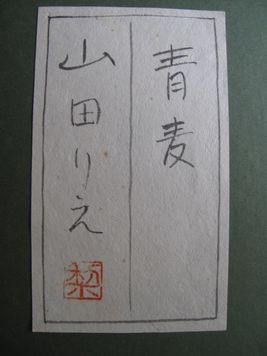 青麦
山田りえ
梨